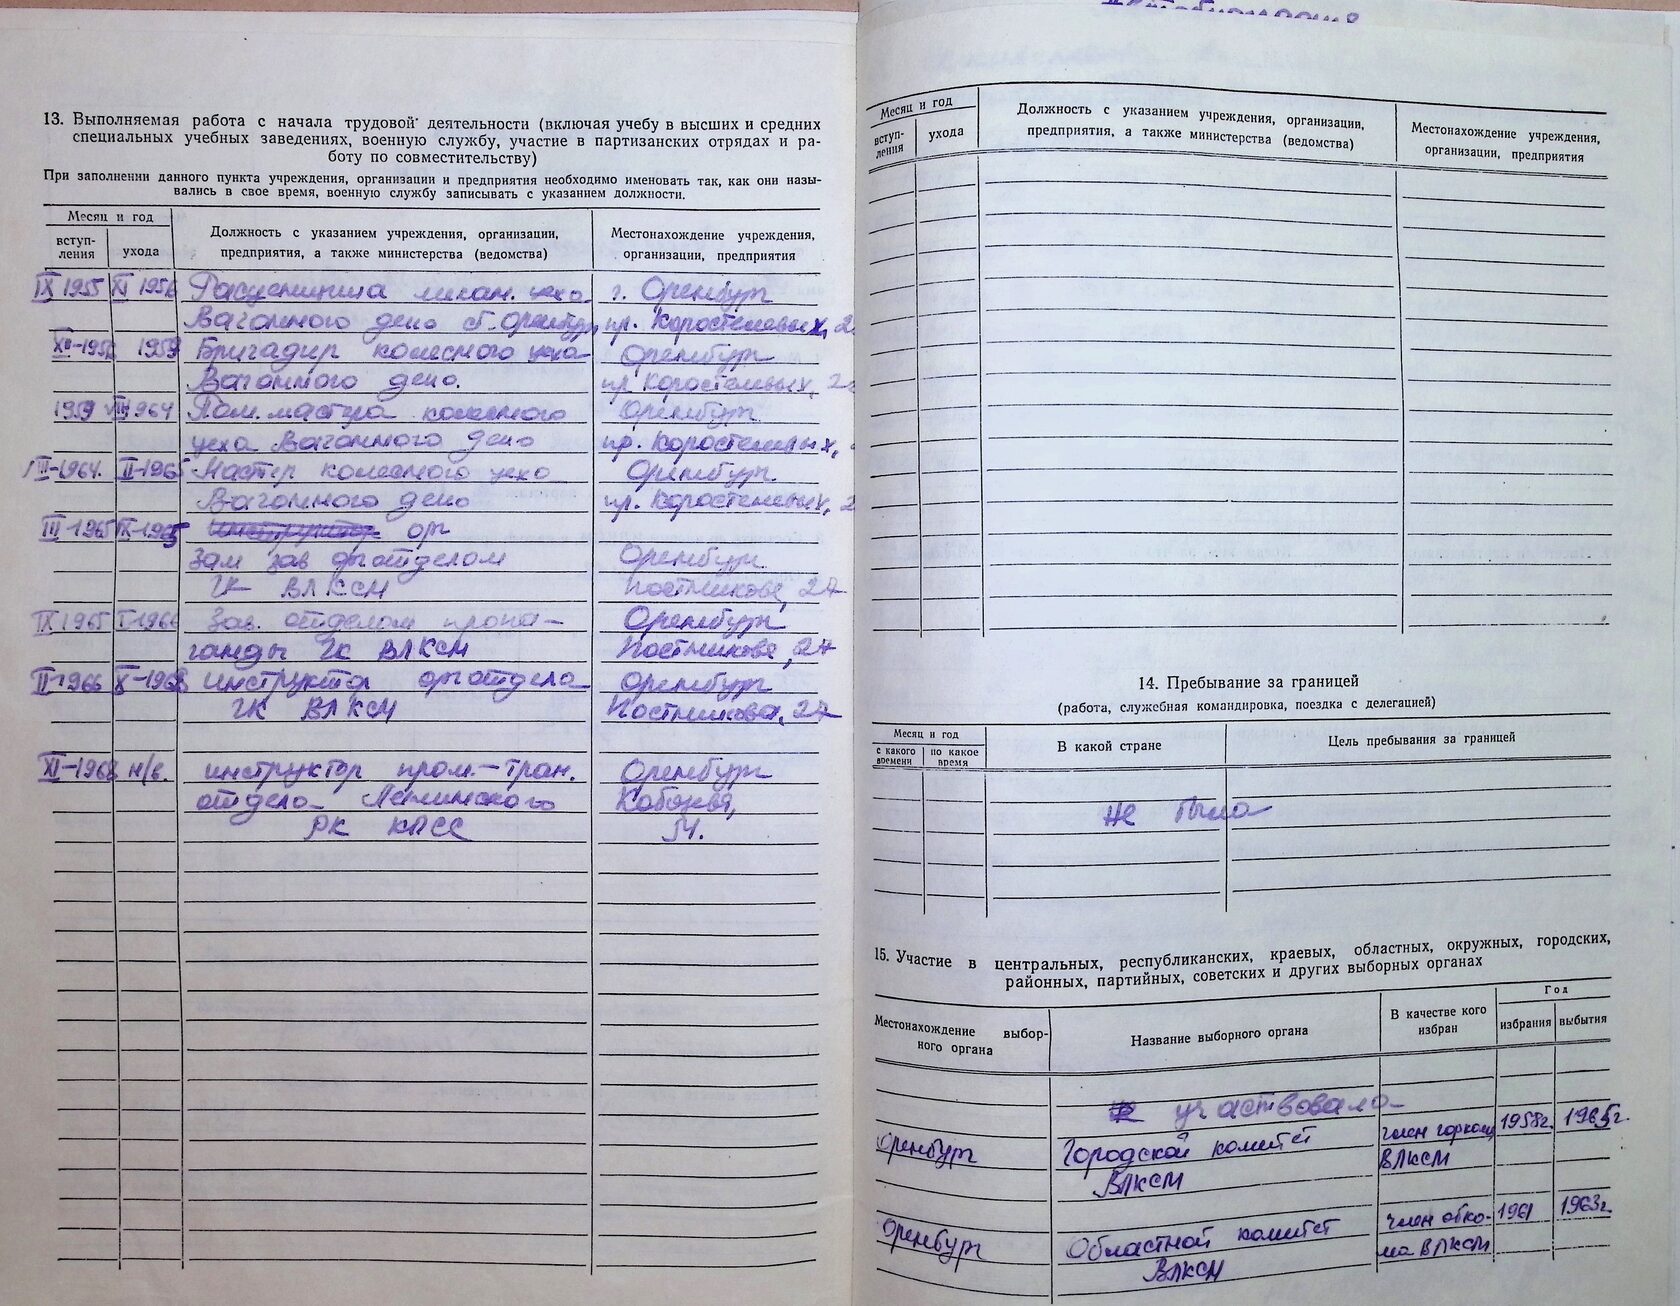 13. Выполняемая работа с начала трудовой деятельности (включая учебу в высших и средних
специальных учебных заведениях, военную службу, участие в партизанских отрядах и ра-
боту по совместительству)
При заполнении данного пункта учреждения, организации и предприятия необходимо именовать так, как они назы-
вались в свое время, военную службу записывать с указанием должности.
Месяц и год
вступ-
ления
ухода
Должность с указанием учреждения, организации,
предприятия, а также министерства (ведомства)
Местонахождение учреждения,
организации, предприятия
IX 1955 XI 1956 механ. цеха г. Оренбург
Вагонного депо ст. Оренбург пр. Коростелевых, 2
1959 Бригадир колесного цеха Оренбург
Вагонного депо. пр Коростелевых, 2
1959 VIII 1964 Пом. мастера колесного Оренбург
цеха Вагонного депо пр. Коростелевых,
VIII-1964. II-1965 Мастер колесного цеха Оренбург
Вагонного депо пр. Коростелевых, 2
III-1965 IX-1965 инструктор орг
Зам зав орготделом Оренбург
ГК ВЛКСМ Постникова, 27
IX 1965 I-1966 Зав. отделом пропа-
Оренбург
ганды ГК ВЛКСМ Постникова, 27
II-1966 X-1968 инструктор орготдела Оренбург
ГК ВЛКСМ Постникова, 27
XI-1968 н/в. инструктор пром.-тран. Оренбург
отдела Ленинского Кобозева,
РК КПСС 54.
Месяц и год
вступ-
ления
ухода
Должность с указанием учреждения, организации,
предприятия, а также министерства (ведомства)
Местонахождение учреждения,
организации, предприятия
14. Пребывание за границей
(работа, служебная командировка, поездка с делегацией)
Месяц и год
с какого
времени
по какое
время
В какой стране
Цель пребывания за границей
не была
15. Участие в центральных, республиканских, краевых, областных, окружных, городских,
районных, партийных, советских и других выборных органах
Местонахождение выбор-
ного органа
Название выборного органа
В качестве кого
избран
Год
избрания
выбытия
не участвовала
Оренбург Городской комитет член горкома 1958г. 1965г.
ВЛКСМ ВЛКСМ
Оренбург Областной комитет член обко- 1961 1963г.
ВЛКСМ ма ВЛКСМ